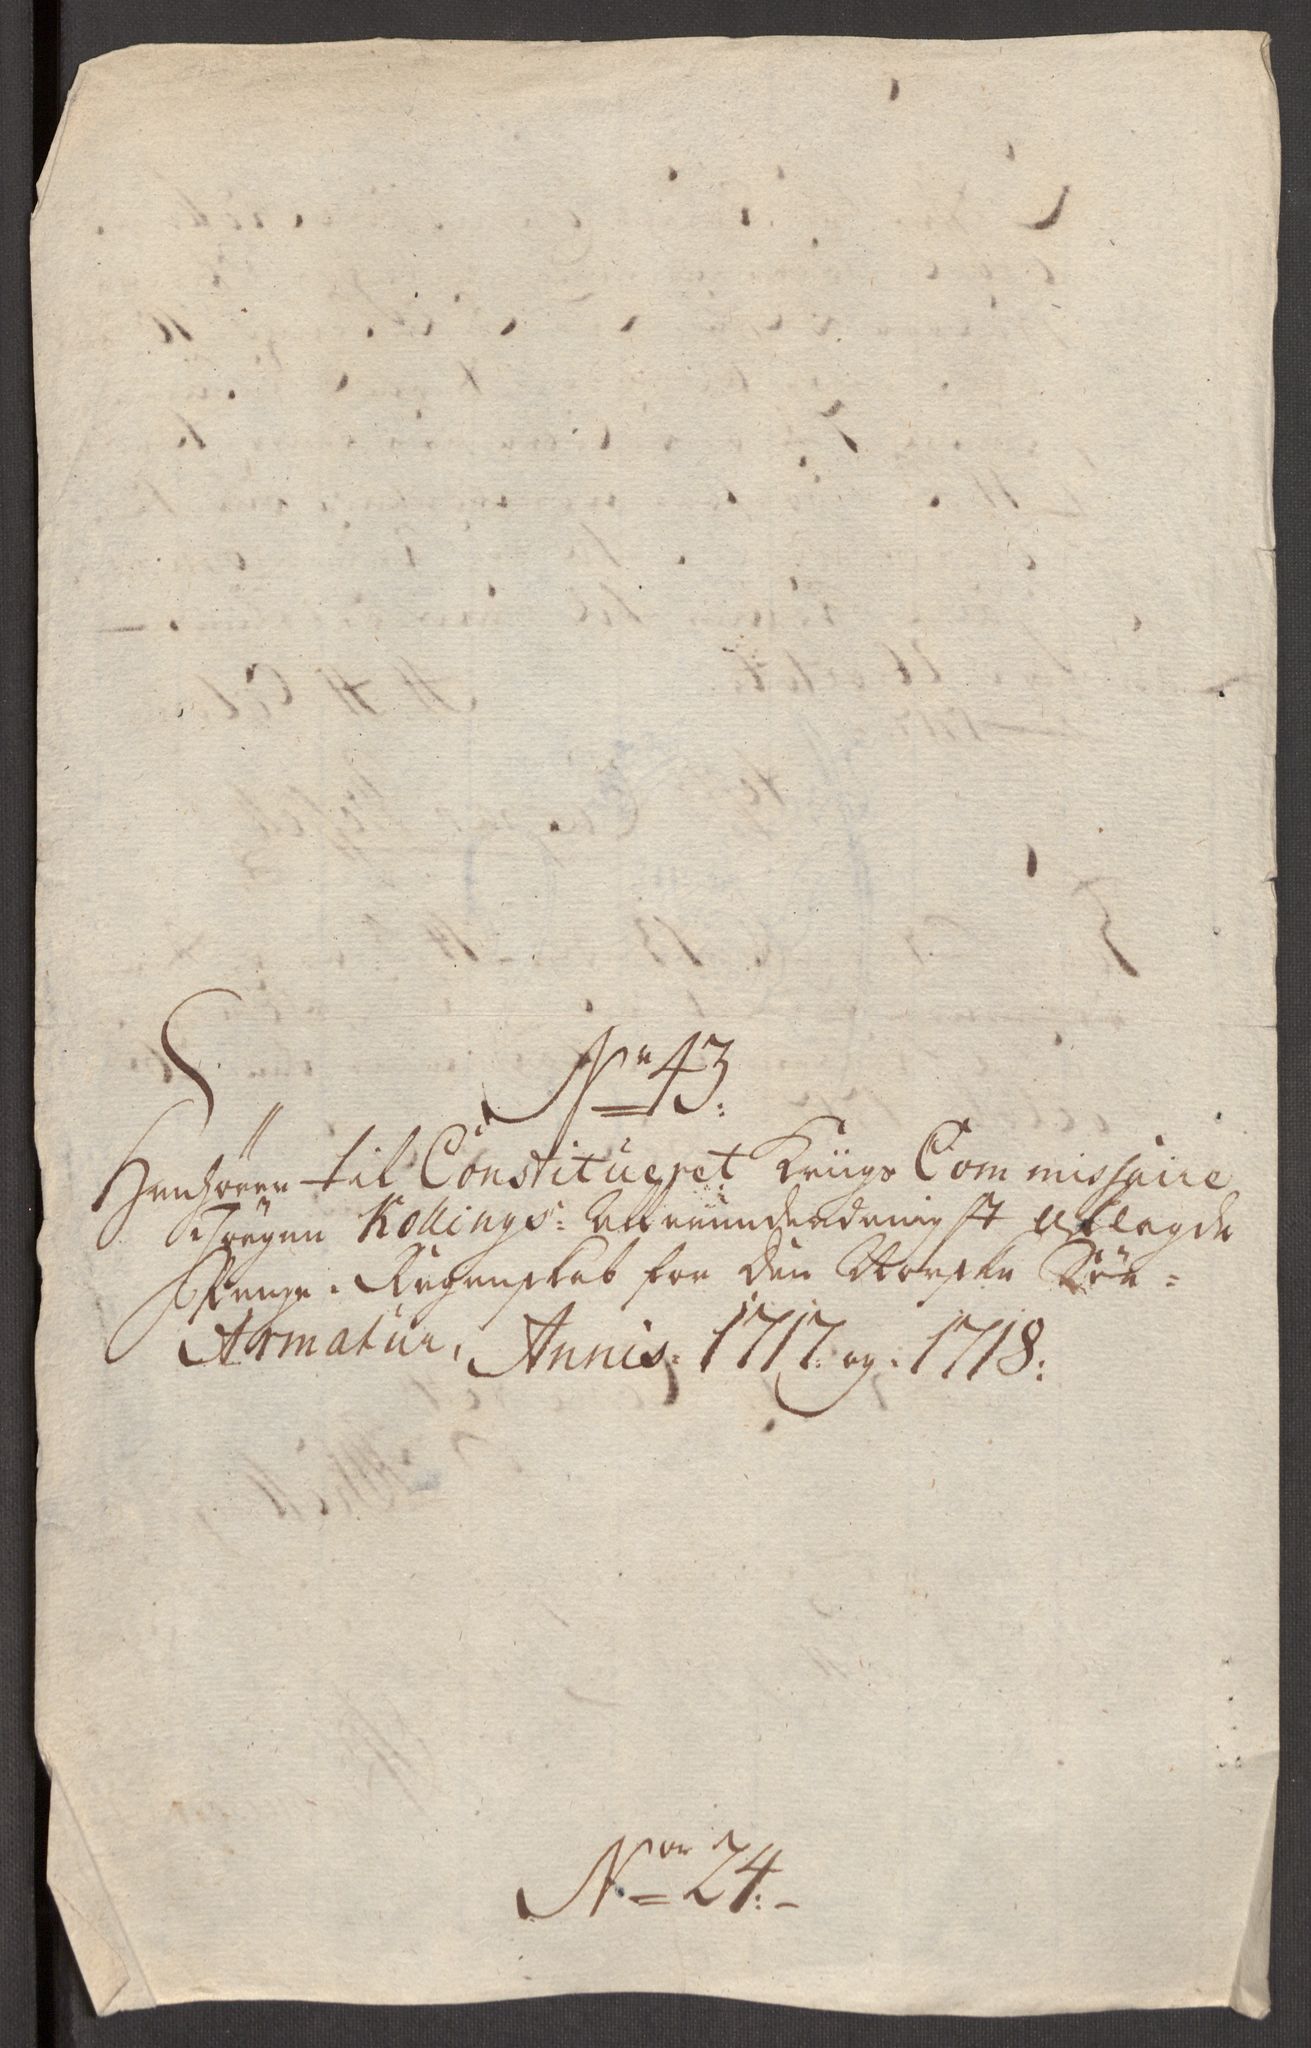 No 43.
Henhörer til Constitueret Kriigs Commissaire
Jörgen Kollings: allerunderdanigst aflagde
Penge-Regenskab for den Norske Söe=
Armatur, Annis: 1717. og. 1718:
Nor 24:-